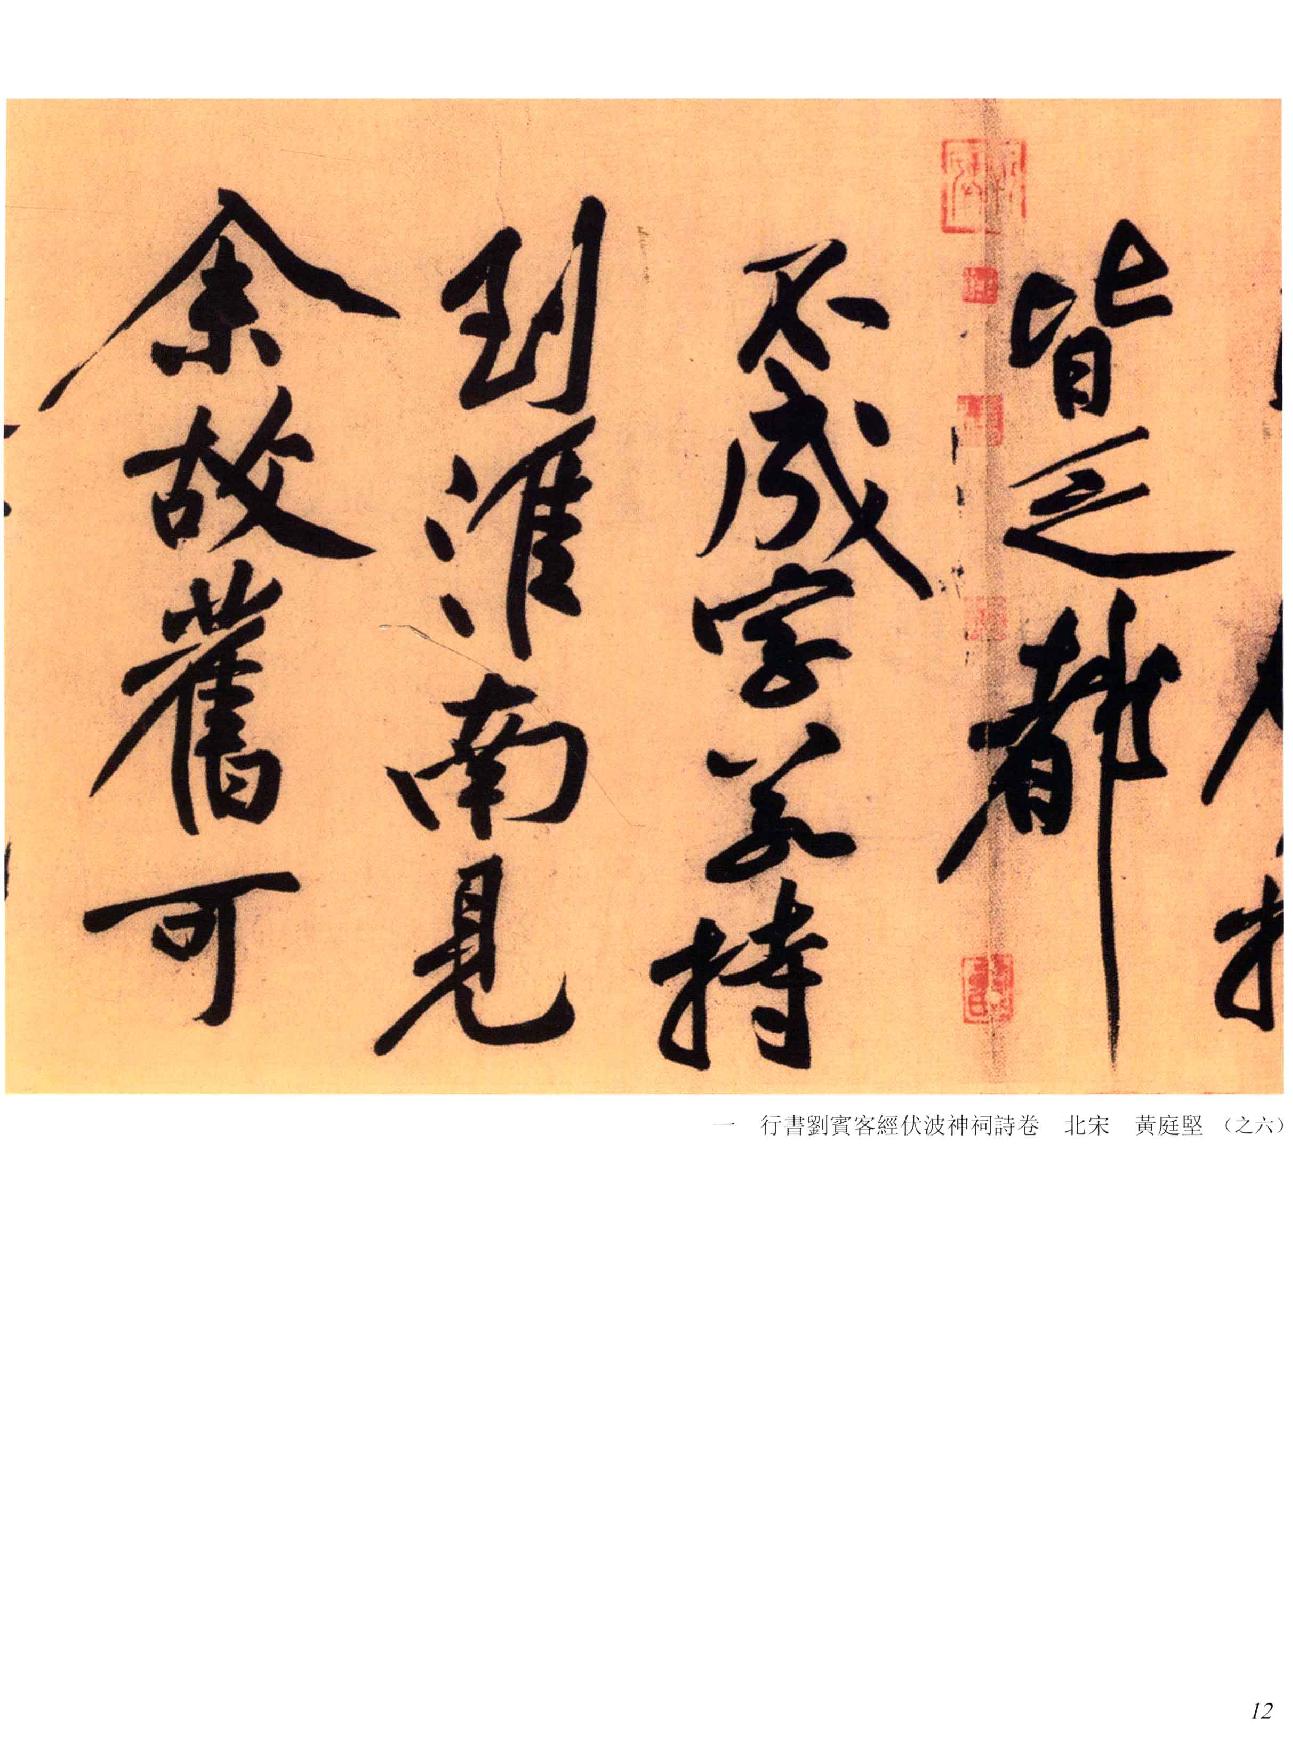 皆乏都
不成字若持
到淮南見
余故舊可
一　行書劉賓客經伏波神祠詩卷　北宋　黃庭堅（之六）
12